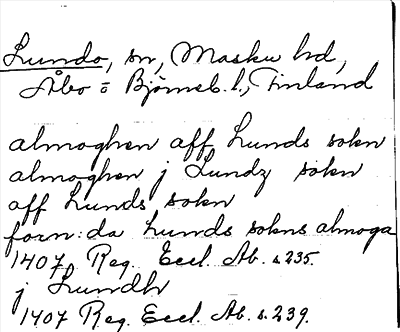 Lundo, sn, Masku hd,
Åbo o Björneb. l., Finland
almoghen aff Lunds sokn
almoghen j Lundz sokn
aff Lunds sokn
forn: da Lunds sokns almoga
1407 Reg. Eccl. Ab. s. 235.
j Lundh
1407 Reg. Eccl. Ab. s. 239.